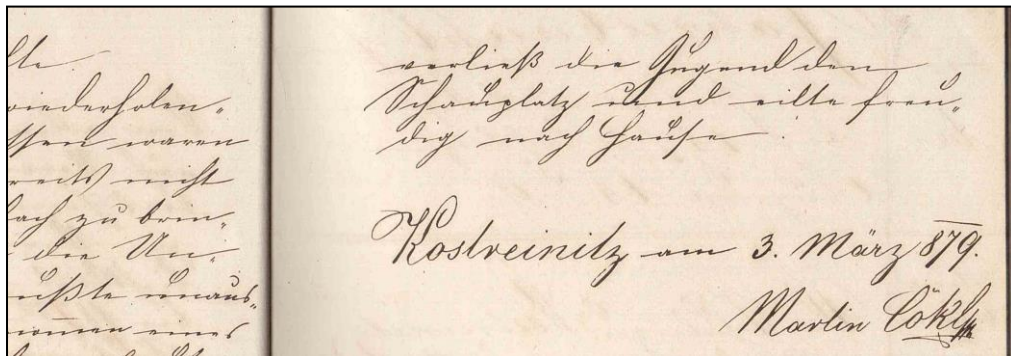 lte.
wiederholen-
ssen waren
reits nicht
ach zu brin-
die Un-
ußte unaus-
eines
verließ die Jugend den
Schauplatz und eilte freu-
dig nach Hause.
Kostreinitz am 3. März 879.
Martin